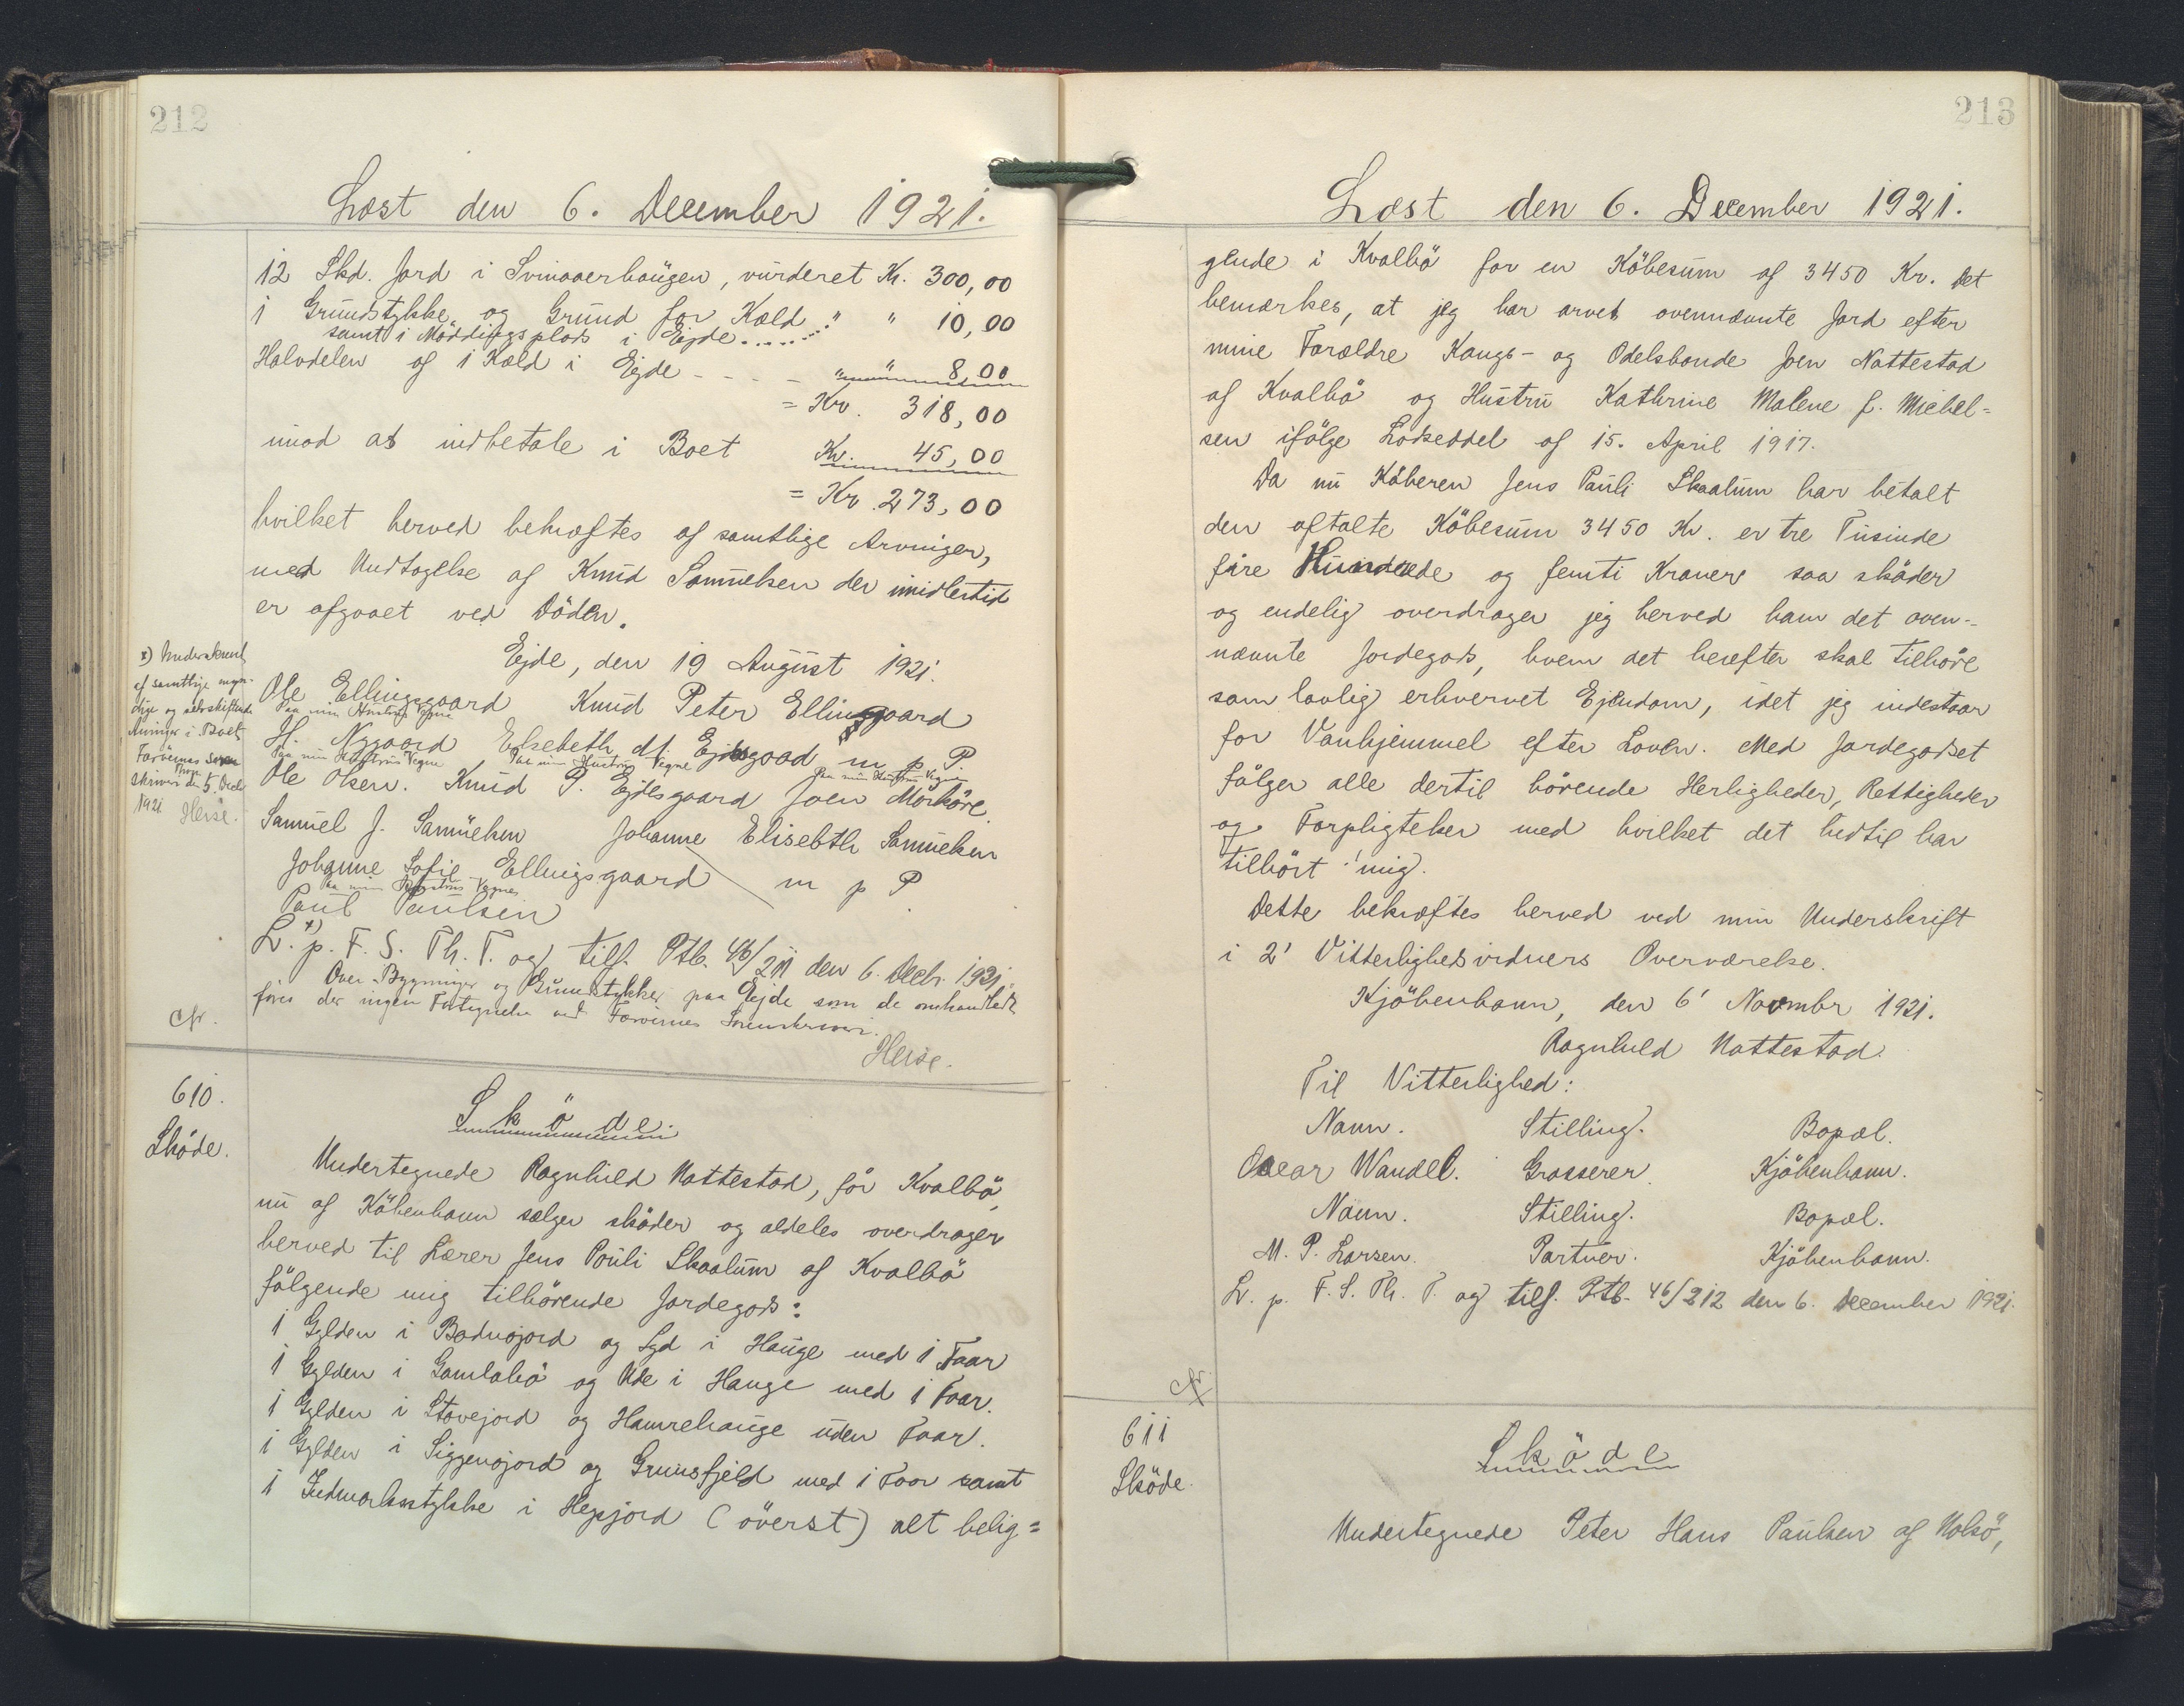 212
Læst den 6. December 1921.
12 Skd. Jord i Svinaaerhaugen, vurderet Kr. 300,00
1 Grundstykke og Grund for Kæld " " 10,00
samt 1 Möddingsplads i Ejde......
Halvdelen af 1 Kæld i Ejde - - - - " " 8,00
= Kr. 318,00
imod at indbetale i Boet Kr. 45,00
= Kr. 273,00
hvilket herved bekræftes af samtlige Arvinger,
med Undtagelse af Knud Samuelsen der imidlertid
er afgaaet ved Döden.
Ejde, den 19 August 1921.
x) Underskrevet
af samtlige myn-
dige og selvskiftende
Arvinger i Boet
Færøernes Soren-
skriveri den 5. Decbr
1921. Heise.
Ole Ellingsgaard Knud Peter Ellingsgaard
Paa min Hustrus Vegne
H. Nygaard Elsebeth M. Ejdesgaad m p P.
Paa min Hustrus Vegne Paa min Hustrus Vegne Paa min Hustrus Vegne
Ole Olsen. Knud P. Ejdesgaard Joen Mörköre.
Samuel J. Samuelsen Johanne Elisebth Samuelsen
Johanne Sofie Ellingsgaard m p P
Paa min Hustrus Vegne
Paul Paulsen
x)
L. p. F. S. Th. T. og tilf. Ptb. 46/211 den 6. Decbr. 1921.
Over Bygninger og Grundstykker paa Ejde som de omhandlede
föres der ingen Fortegnelse ved Færöernes Sorenskriveri.
Heise.
Cfr.
610.
Sköde.
Sköde.
Undertegnede Ragnhild Nattestad, för Kvalbö,
nu af Köbenhavn sælger sköder og aldeles overdrager
herved til Lærer Jens Pouli Skaalum af Kvalbö
fölgende mig tilhörende Jordegods:
1 Gylden i Bodnajord og Syd i Hauge med 1 Faar
1 Gylden i Gamlabö og Ude i Hauge med 1 Faar.
1 Gylden i Stovejord og Hamrehauge uden Faar.
1 Gylden i Siggenajord og Grunsfjeld med 1 Faar samt
1 Indmarksstykke i Hegjord (överst) alt belig=
213
Læst den 6. December 1921.
gende i Kvalbö for en Köbesum af 3450 Kr. Det
bemærkes, at jeg har arvet ovennævnte Jord efter
mine Forældre Kongs- og Odelsbonde Joen Nattestad
af Kvalbö og Hustru Kathrine Malene f. Michel=
sen ifölge Lodseddel af 15. April 1917.
Da nu Köberen Jens Pauli Skaalum har betalt
den aftalte Köbesum 3450 Kr. er tre Tusinde
fire Hundrede og femti Kroner saa sköder
og endelig overdrager jeg herved ham det oven-
nævnte Jordegods, hvem det herefter skal tilhöre
som lovlig erhvervet Ejendom, idet jeg indestaar
for Vanhjemmel efter Loven. Med Jordegodset
fölger alle dertil hörende Herligheder, Rettigheder
og Forpligtelser med hvilket det hidtil har
tilhört mig.
Dette bekræftes herved ved min Underskrift
i 2 Vitterlighedsvidners Overværelse.
Kjöbenhavn, den 6 Novmbr 1921.
Ragnhild Nattestad.
Til Vitterlighed:
Navn. Stilling. Bopæl.
Oscar Wandel. Grosserer. Kjöbenhavn.
Navn. Stilling. Bopæl.
M. P. Larsen. Partner. Kjöbenhavn.
L. p. F. S. Th. T. og tilf. Ptb. 46/212 den 6. December 1921.
cfr.
611
Sköde.
Sköde
Undertegnede Peter Hans Paulsen af Nolsö,